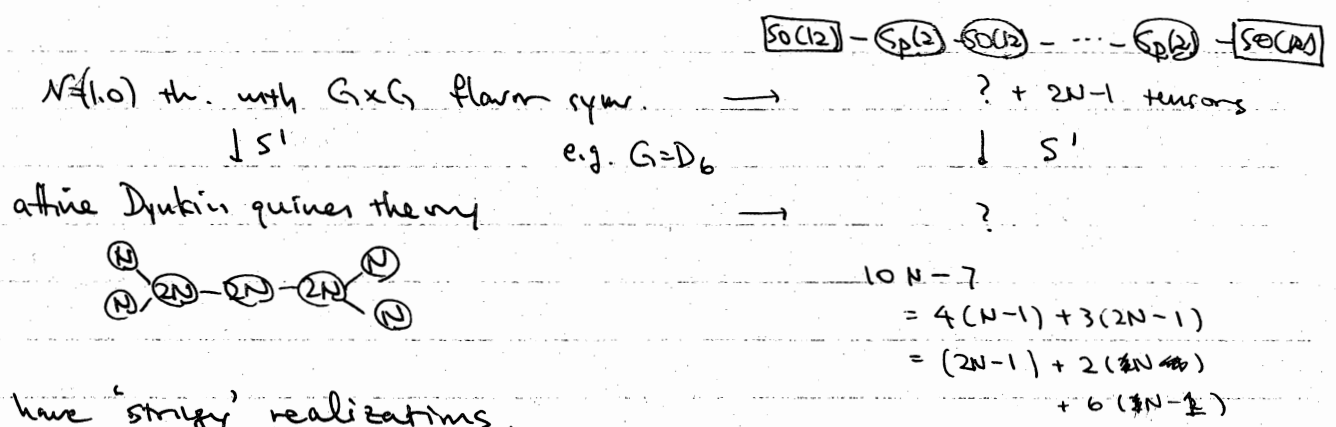 SO(12) - Sp(2) - SO(12) - ... - Sp(2) - SO(12)
N=(1,0) th. with G×G flavor sym. → ? + 2N-1 tensors
↓ S¹ e.g. G=D₆ ↓ S¹
affine Dynkin quiver theory → ?
N N
2N - 2N - 2N
N N
10N-7
= 4(N-1) + 3(2N-1)
= (2N-1) + 2(N
+ 6(N-1)
have 'stringy' realizations.